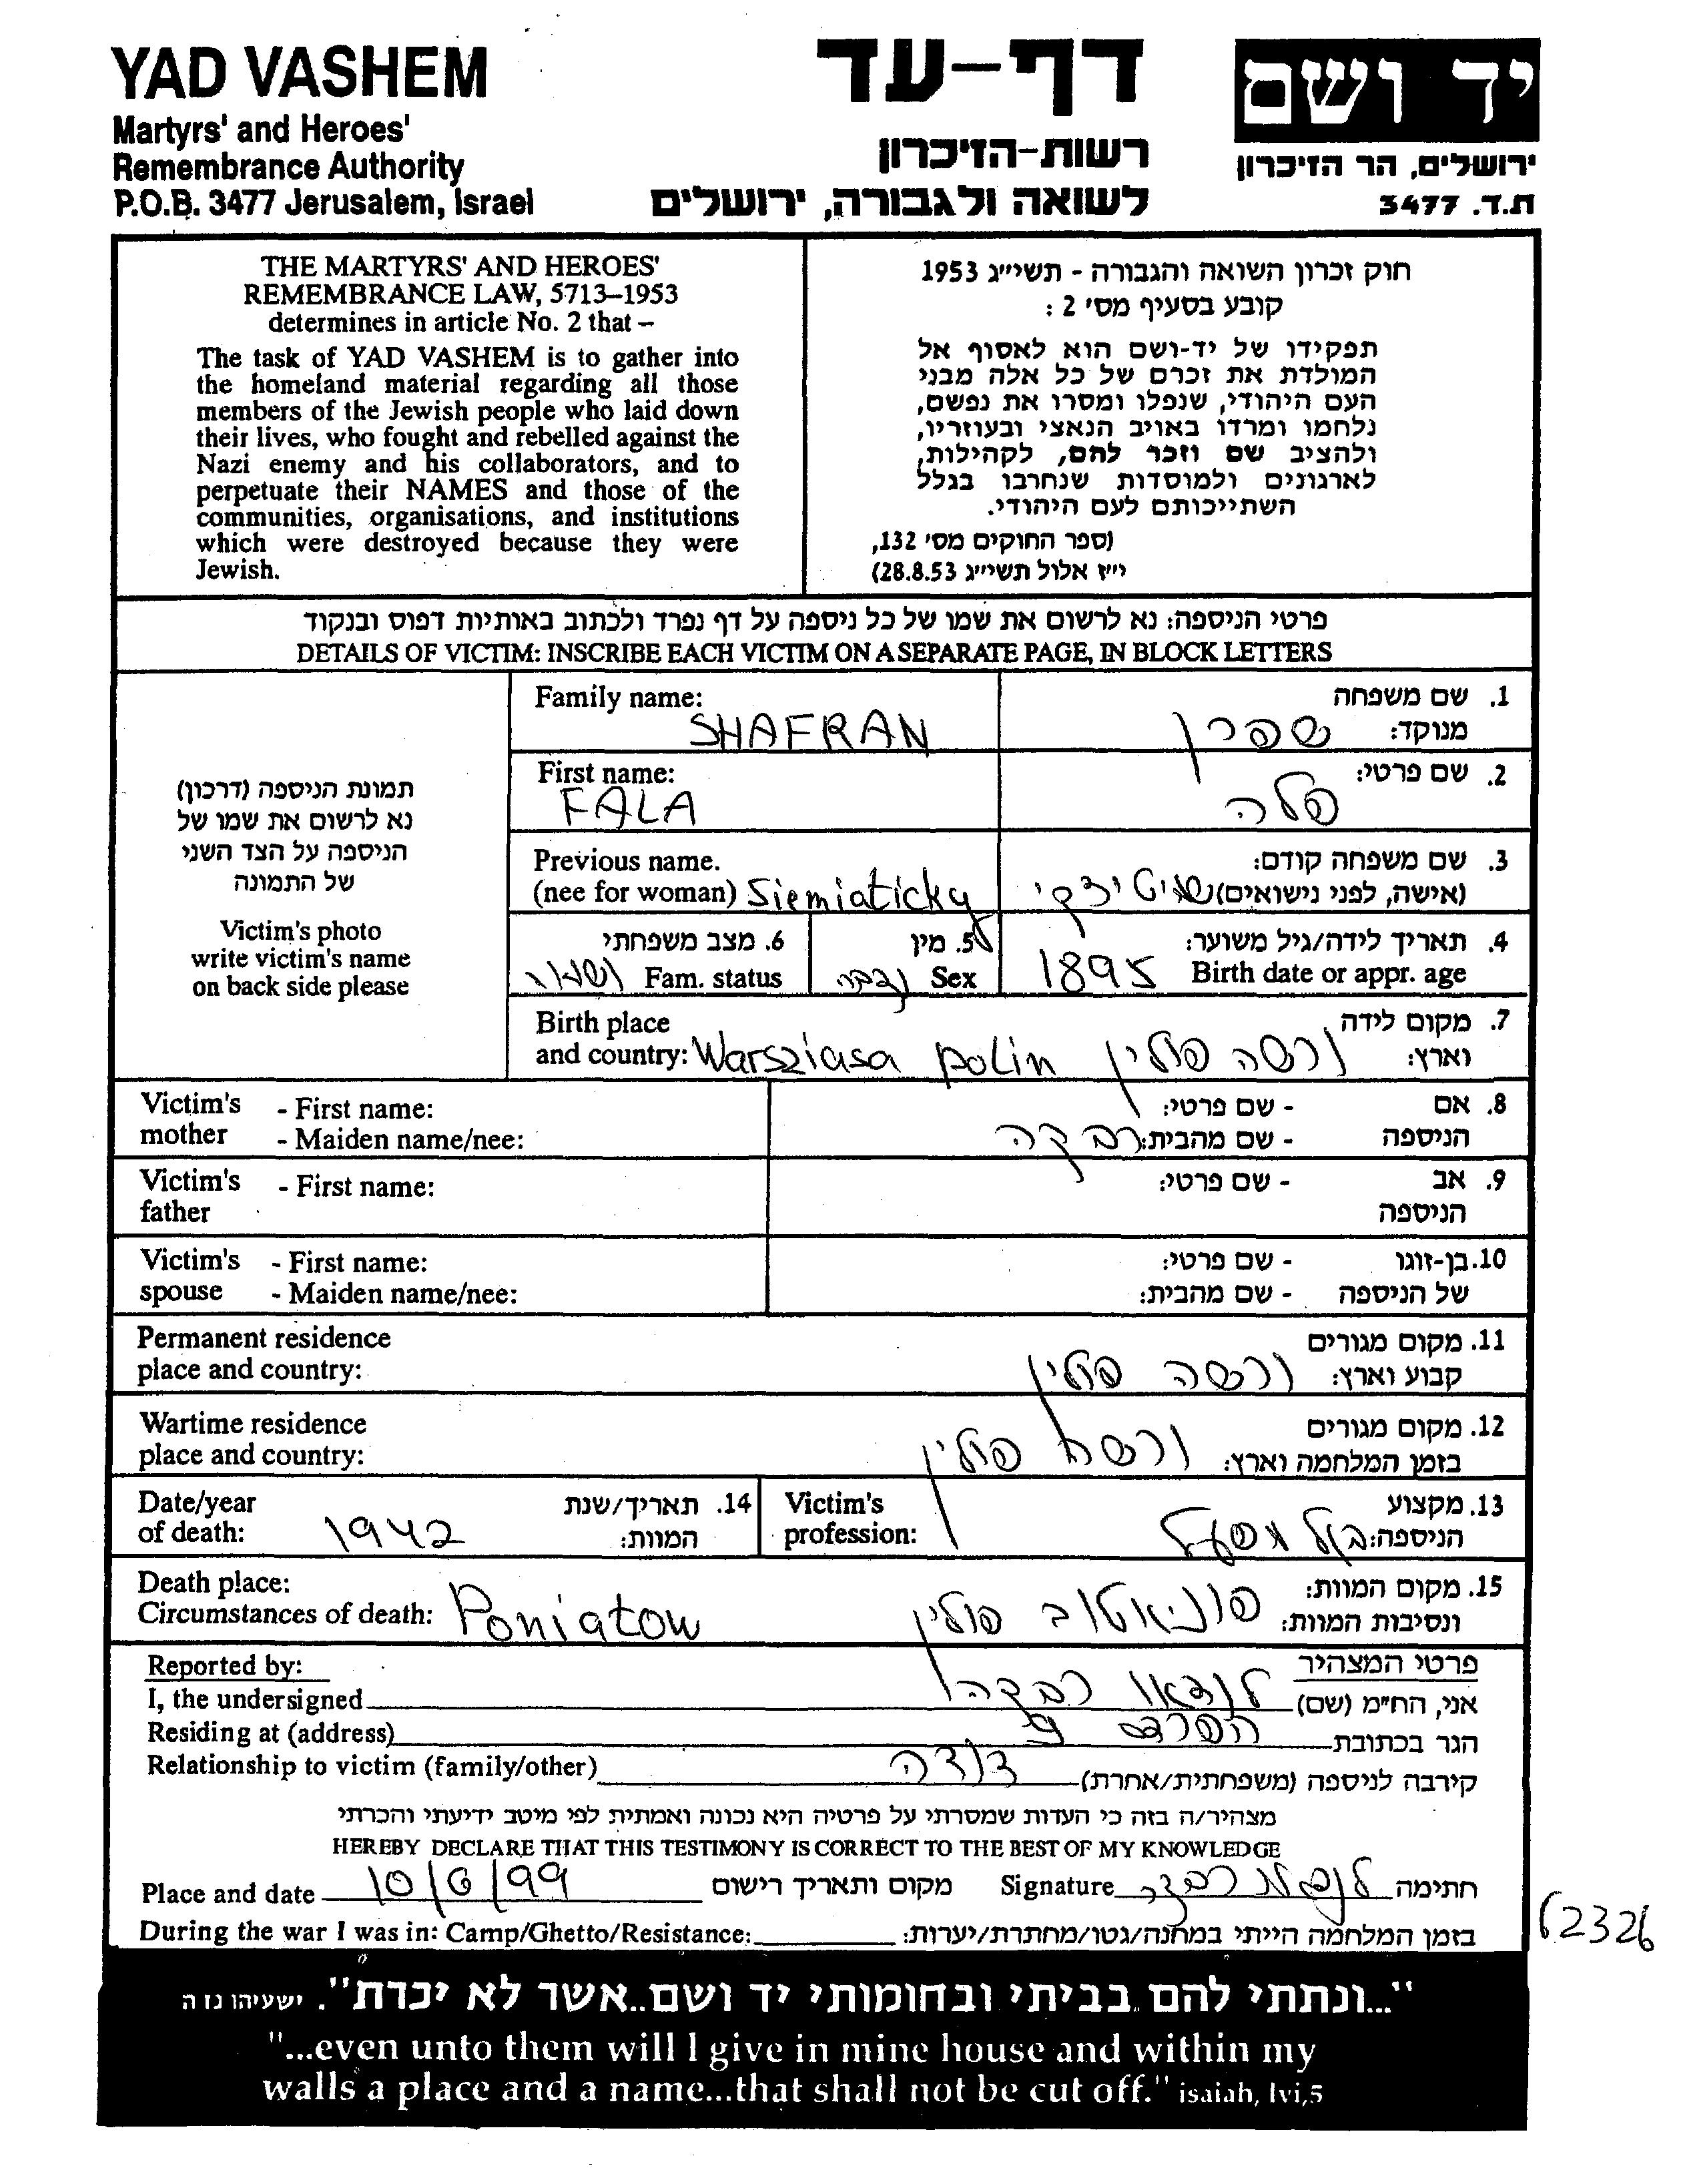 YAD VASHEM
Martyrs' and Heroes'
Remembrance Authority
P.O.B. 3477 Jerusalem, Israel
דף-עד
רשות-הזיכרון
לשואה ולגבורה, ירושלים
יד ושם
ירושלים, הר הזיכרון
ת.ד. 3477
THE MARTYRS' AND HEROES'
REMEMBRANCE LAW, 5713–1953
determines in article No. 2 that –
The task of YAD VASHEM is to gather into
the homeland material regarding all those
members of the Jewish people who laid down
their lives, who fought and rebelled against the
Nazi enemy and his collaborators, and to
perpetuate their NAMES and those of the
communities, organisations, and institutions
which were destroyed because they were
Jewish.
חוק זכרון השואה והגבורה - תשי״ג 1953
קובע בסעיף מס׳ 2 :
תפקידו של יד-ושם הוא לאסוף אל
המולדת את זכרם של כל אלה מבני
העם היהודי, שנפלו ומסרו את נפשם,
נלחמו ומרדו באויב הנאצי ובעוזריו,
ולהציב שם וזכר להם, לקהילות,
לארגונים ולמוסדות שנחרבו בגלל
השתייכותם לעם היהודי.
(ספר החוקים מס׳ 132,
י״ז אלול תשי״ג 28.8.53)
פרטי הניספה: נא לרשום את שמו של כל ניספה על דף נפרד ולכתוב באותיות דפוס ובנקוד
DETAILS OF VICTIM: INSCRIBE EACH VICTIM ON A SEPARATE PAGE, IN BLOCK LETTERS
תמונת הניספה (דרכון)
נא לרשום את שמו של
הניספה על הצד השני
של התמונה
Victim's photo
write victim's name
on back side please
Family name: SHAFRAN
1. שם משפחה
מנוקד: שפרן
First name: FALA
2. שם פרטי: פלה
Previous name.
(nee for woman) Siemiaticky
3. שם משפחה קודם:
(אישה, לפני נישואים)
4. תאריך לידה/גיל משוער:
Birth date or appr. age 1895
5. מין
Sex נקבה
6. מצב משפחתי
Fam. status נשואה
Birth place
and country: Warsziasa polin
7. מקום לידה
וארץ: ורשה פולין
Victim's mother - First name:
- Maiden name/nee:
8. אם הניספה - שם פרטי:
- שם מהבית: רבקה
Victim's father - First name:
9. אב הניספה - שם פרטי:
Victim's spouse - First name:
- Maiden name/nee:
10. בן-זוגו של הניספה - שם פרטי:
- שם מהבית:
Permanent residence
place and country:
11. מקום מגורים
קבוע וארץ: ורשה פולין
Wartime residence
place and country:
12. מקום מגורים
בזמן המלחמה וארץ: ורשה פולין
Date/year
of death: 1942
14. תאריך/שנת
המוות:
Victim's
profession:
13. מקצוע
הניספה: בעל מפעל
Death place:
Circumstances of death: Poniatow
15. מקום המוות:
ונסיבות המוות: פוניאטוב פולין
Reported by:
פרטי המצהיר
I, the undersigned
אני, הח״מ (שם) לנדאו רבקה
Residing at (address)
הגר בכתובת
Relationship to victim (family/other)
קירבה לניספה (משפחתית/אחרת) דודה
מצהיר/ה בזה כי העדות שמסרתי על פרטיה היא נכונה ואמתית לפי מיטב ידיעתי והכרתי
HEREBY DECLARE THAT THIS TESTIMONY IS CORRECT TO THE BEST OF MY KNOWLEDGE
Place and date 10/6/99 מקום ותאריך רישום
Signature לנדאו רבקה חתימה
During the war I was in: Camp/Ghetto/Resistance:
בזמן המלחמה הייתי במחנה/גטו/מחתרת/יערות:
62326
"...ונתתי להם בביתי ובחומותי יד ושם..אשר לא יכרת". ישעיהו נו ה
"...even unto them will I give in mine house and within my
walls a place and a name...that shall not be cut off." isaiah, lvi,5